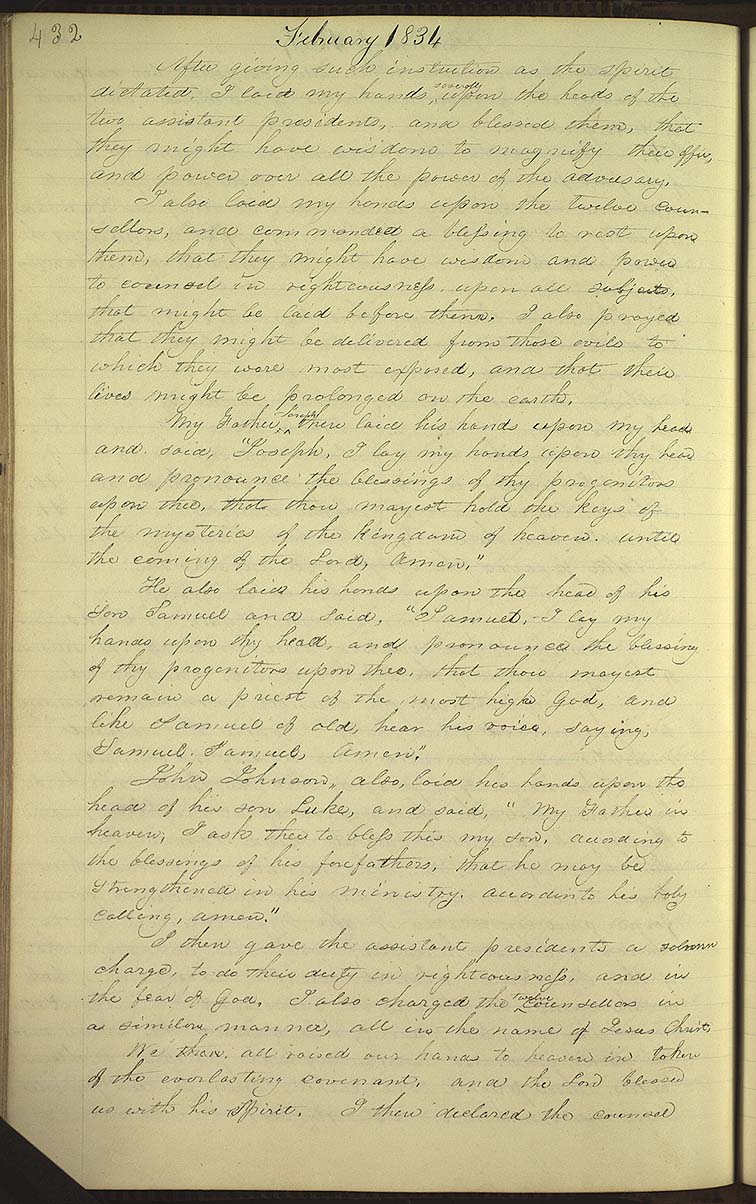 432
February 1834
After giving such instruction as the Spirit
dictated, I laid my hands, severally upon the heads of the
two assistant presidents, and blessed them, that
they might have wisdom to magnify their office,
and power over all the power of the adversary.
I also laid my hands upon the twelve coun-
sellors, and commanded a blessing to rest upon
them, that they might have wisdom and power
to counsel in righteousness, upon all subjects,
that might be laid before them. I also prayed
that they might be delivered from those evils to
which they were most exposed, and that their
lives might be prolonged on the earth.
My Father, Joseph, then laid his hands upon my head
and said, "Joseph, I lay my hands upon thy head
and pronounce the blessings of thy progenitors
upon thee, that thou mayest hold the keys of
the mysteries of the kingdom of heaven. until
the coming of the Lord, Amen."
He also laid his hands upon the head of his
son Samuel and said, "Samuel, I lay my
hands upon thy head, and pronounce the blessing
of thy progenitors upon thee, that thou mayest
remain a priest of the most high God, and
like Samuel of old, hear his voice, saying,
Samuel. Samuel, Amen."
John Johnson, also, laid his hands upon the
head of his son Luke, and said, "My Father in
heaven, I ask thee to bless this my son, according to
the blessings of his forefathers, that he may be
strengthened in his ministry. accordin to his holy
calling, amen."
I then gave the assistant presidents a solemn
charge, to do their duty in righteousness, and in
the fear of God, I also charged the twelve counsellors in
a similar manner, all in the name of Jesus Christ,
We then all raised our hands to heaven in token
of the everlasting covenant, and the Lord blessed
us with his Spirit. I then declared the counsel